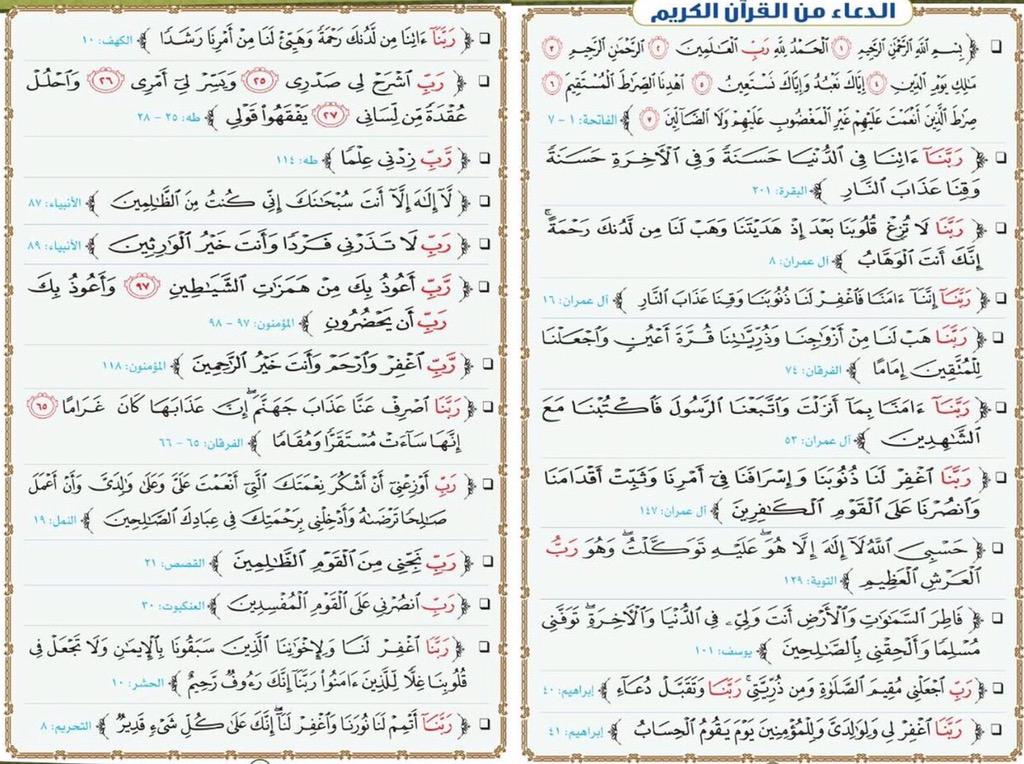 الدعاء من القرآن الكريم
❑ ﴿ بِسْمِ اللَّهِ الرَّحْمَٰنِ الرَّحِيمِ ١ الْحَمْدُ لِلَّهِ رَبِّ الْعَالَمِينَ ٢ الرَّحْمَٰنِ الرَّحِيمِ ٣
مَالِكِ يَوْمِ الدِّينِ ٤ إِيَّاكَ نَعْبُدُ وَإِيَّاكَ نَسْتَعِينُ ٥ اهْدِنَا الصِّرَاطَ الْمُسْتَقِيمَ ٦
صِرَاطَ الَّذِينَ أَنْعَمْتَ عَلَيْهِمْ غَيْرِ الْمَغْضُوبِ عَلَيْهِمْ وَلَا الضَّالِّينَ ٧ ﴾ الفاتحة: ١ - ٧
❑ ﴿ رَبَّنَا ءَاتِنَا فِي الدُّنْيَا حَسَنَةً وَفِي الْآخِرَةِ حَسَنَةً
وَقِنَا عَذَابَ النَّارِ ﴾ البقرة: ٢٠١
❑ ﴿ رَبَّنَا لَا تُزِغْ قُلُوبَنَا بَعْدَ إِذْ هَدَيْتَنَا وَهَبْ لَنَا مِن لَّدُنكَ رَحْمَةً ۚ
إِنَّكَ أَنتَ الْوَهَّابُ ﴾ آل عمران: ٨
❑ ﴿ رَبَّنَا إِنَّنَا ءَامَنَّا فَاغْفِرْ لَنَا ذُنُوبَنَا وَقِنَا عَذَابَ النَّارِ ﴾ آل عمران: ١٦
❑ ﴿ رَبَّنَا هَبْ لَنَا مِنْ أَزْوَاجِنَا وَذُرِّيَّاتِنَا قُرَّةَ أَعْيُنٍ وَاجْعَلْنَا
لِلْمُتَّقِينَ إِمَامًا ﴾ الفرقان: ٧٤
❑ ﴿ رَبَّنَا ءَامَنَّا بِمَا أَنزَلْتَ وَاتَّبَعْنَا الرَّسُولَ فَاكْتُبْنَا مَعَ
الشَّاهِدِينَ ﴾ آل عمران: ٥٣
❑ ﴿ رَبَّنَا اغْفِرْ لَنَا ذُنُوبَنَا وَإِسْرَافَنَا فِي أَمْرِنَا وَثَبِّتْ أَقْدَامَنَا
وَانصُرْنَا عَلَى الْقَوْمِ الْكَافِرِينَ ﴾ آل عمران: ١٤٧
❑ ﴿ حَسْبِيَ اللَّهُ لَا إِلَٰهَ إِلَّا هُوَ ۖ عَلَيْهِ تَوَكَّلْتُ ۖ وَهُوَ رَبُّ
الْعَرْشِ الْعَظِيمِ ﴾ التوبة: ١٢٩
❑ ﴿ فَاطِرَ السَّمَاوَاتِ وَالْأَرْضِ أَنتَ وَلِيِّي فِي الدُّنْيَا وَالْآخِرَةِ ۖ تَوَفَّنِي
مُسْلِمًا وَأَلْحِقْنِي بِالصَّالِحِينَ ﴾ يوسف: ١٠١
❑ ﴿ رَبِّ اجْعَلْنِي مُقِيمَ الصَّلَاةِ وَمِن ذُرِّيَّتِي ۚ رَبَّنَا وَتَقَبَّلْ دُعَاءِ ﴾ إبراهيم: ٤٠
❑ ﴿ رَبَّنَا اغْفِرْ لِي وَلِوَالِدَيَّ وَلِلْمُؤْمِنِينَ يَوْمَ يَقُومُ الْحِسَابُ ﴾ إبراهيم: ٤١
❑ ﴿ رَبَّنَا ءَاتِنَا مِن لَّدُنكَ رَحْمَةً وَهَيِّئْ لَنَا مِنْ أَمْرِنَا رَشَدًا ﴾ الكهف: ١٠
❑ ﴿ رَبِّ اشْرَحْ لِي صَدْرِي ٢٥ وَيَسِّرْ لِي أَمْرِي ٢٦ وَاحْلُلْ
عُقْدَةً مِّن لِّسَانِي ٢٧ يَفْقَهُوا قَوْلِي ﴾ طه: ٢٥ - ٢٨
❑ ﴿ رَّبِّ زِدْنِي عِلْمًا ﴾ طه: ١١٤
❑ ﴿ لَّا إِلَٰهَ إِلَّا أَنتَ سُبْحَانَكَ إِنِّي كُنتُ مِنَ الظَّالِمِينَ ﴾ الأنبياء: ٨٧
❑ ﴿ رَبِّ لَا تَذَرْنِي فَرْدًا وَأَنتَ خَيْرُ الْوَارِثِينَ ﴾ الأنبياء: ٨٩
❑ ﴿ رَّبِّ أَعُوذُ بِكَ مِنْ هَمَزَاتِ الشَّيَاطِينِ ٩٧ وَأَعُوذُ بِكَ
رَبِّ أَن يَحْضُرُونِ ﴾ المؤمنون: ٩٧ - ٩٨
❑ ﴿ رَّبِّ اغْفِرْ وَارْحَمْ وَأَنتَ خَيْرُ الرَّاحِمِينَ ﴾ المؤمنون: ١١٨
❑ ﴿ رَبَّنَا اصْرِفْ عَنَّا عَذَابَ جَهَنَّمَ ۖ إِنَّ عَذَابَهَا كَانَ غَرَامًا ٦٥
إِنَّهَا سَاءَتْ مُسْتَقَرًّا وَمُقَامًا ﴾ الفرقان: ٦٥ - ٦٦
❑ ﴿ رَبِّ أَوْزِعْنِي أَنْ أَشْكُرَ نِعْمَتَكَ الَّتِي أَنْعَمْتَ عَلَيَّ وَعَلَىٰ وَالِدَيَّ وَأَنْ أَعْمَلَ
صَالِحًا تَرْضَاهُ وَأَدْخِلْنِي بِرَحْمَتِكَ فِي عِبَادِكَ الصَّالِحِينَ ﴾ النمل: ١٩
❑ ﴿ رَبِّ نَجِّنِي مِنَ الْقَوْمِ الظَّالِمِينَ ﴾ القصص: ٢١
❑ ﴿ رَبِّ انصُرْنِي عَلَى الْقَوْمِ الْمُفْسِدِينَ ﴾ العنكبوت: ٣٠
❑ ﴿ رَبَّنَا اغْفِرْ لَنَا وَلِإِخْوَانِنَا الَّذِينَ سَبَقُونَا بِالْإِيمَانِ وَلَا تَجْعَلْ فِي
قُلُوبِنَا غِلًّا لِّلَّذِينَ ءَامَنُوا رَبَّنَا إِنَّكَ رَءُوفٌ رَّحِيمٌ ﴾ الحشر: ١٠
❑ ﴿ رَبَّنَا أَتْمِمْ لَنَا نُورَنَا وَاغْفِرْ لَنَا ۖ إِنَّكَ عَلَىٰ كُلِّ شَيْءٍ قَدِيرٌ ﴾ التحريم: ٨